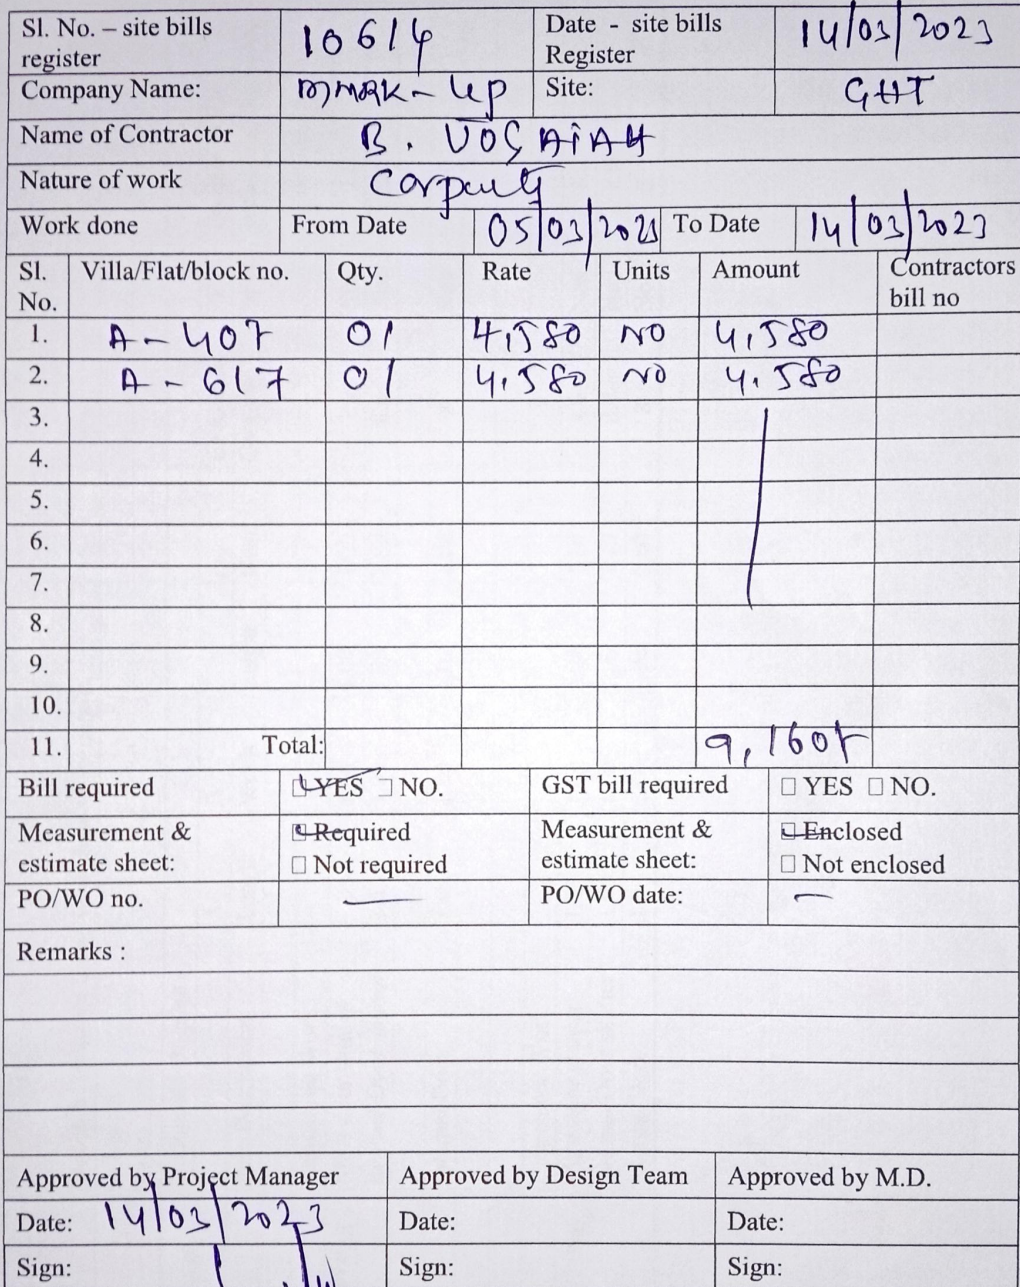 Sl. No. – site bills register 10614 Date - site bills Register 14/03/2023
Company Name: MMRK-Up Site: GHT
Name of Contractor B.
Nature of work
Work done From Date 05/03/2023 To Date 14/03/2023
Sl. No. Villa/Flat/block no. Qty. Rate Units Amount Contractors bill no
1. A - 407 01 4,580 NO 4,580
2. A - 617 01 4,580 NO 4,580
3.
4.
5.
6.
7.
8.
9.
10.
11. Total: 9,160
Bill required YES NO. GST bill required YES NO.
Measurement & estimate sheet: Required Not required Measurement & estimate sheet: Enclosed Not enclosed
PO/WO no. — PO/WO date: –
Remarks :
Approved by Project Manager Approved by Design Team Approved by M.D.
Date: 14/03/2023 Date: Date:
Sign: Sign: Sign: